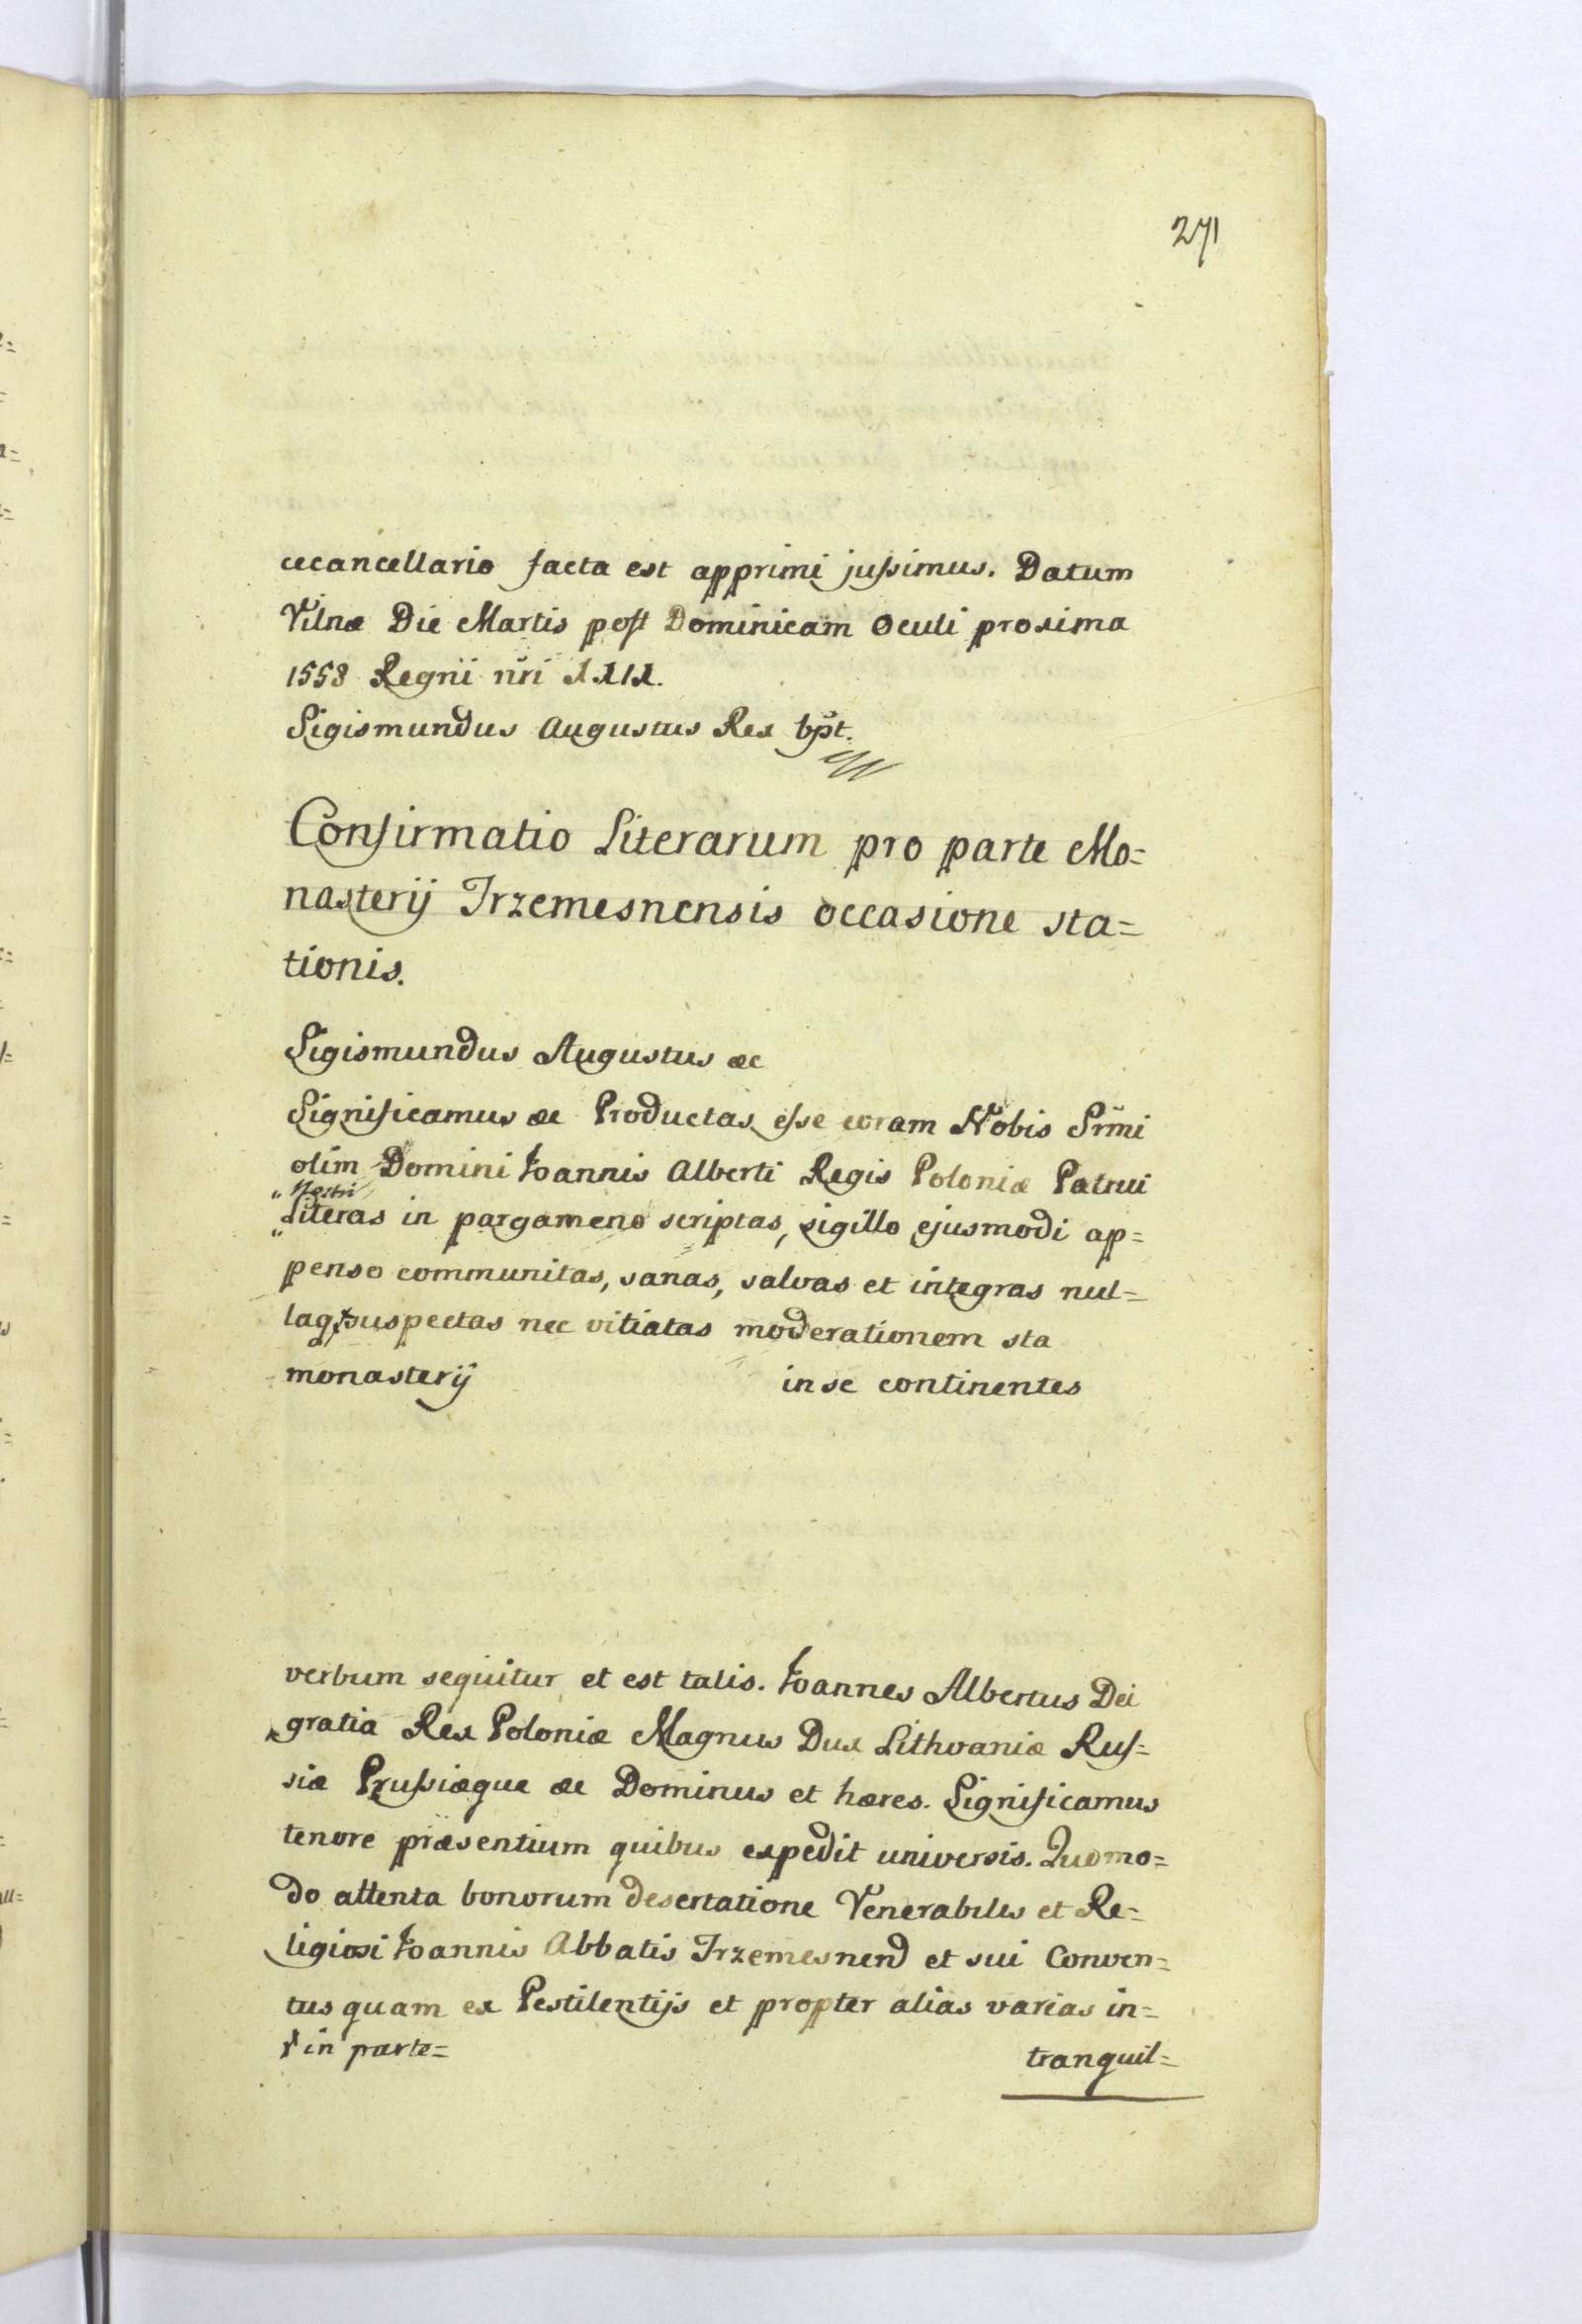 271
cecancellario facta est apprimi jussimus. Datum
Vilnæ Die Martis post Dominicam Oculi proxima
1558 Regnii nri XXIX.
Sigismundus Augustus Rex spt.
Confirmatio Literarum pro parte Mo=
nasterij Trzemesnensis occasione sta=
tionis.
Sigismundus Augustus &c
Significamus &c Productas esse coram Nobis Srmi
olim Domini Joannis Alberti Regis Poloniæ Patrui
„ Nostri
„ Literas in pargameno scriptas, sigillo ejusmodi ap=
penso communitas, sanas, salvas et integras nul=
laq; suspectas nec vitiatas moderationem sta
monasterij in se continentes
verbum sequitur et est talis. Joannes Albertus Dei
gratia Rex Poloniæ Magnus Dux Lithvaniæ Rus=
siæ Prussiæque &c Dominus et hæres. Significamus
tenore præsentium quibus expedit universis. Quomo=
do attenta bonorum desertatione Venerabilis et Re=
ligiosi Joannis Abbatis Trzemesnen et sui Conven=
tus quam ex Pestilentijs et propter alias varias in=
in parte=
tranquil=